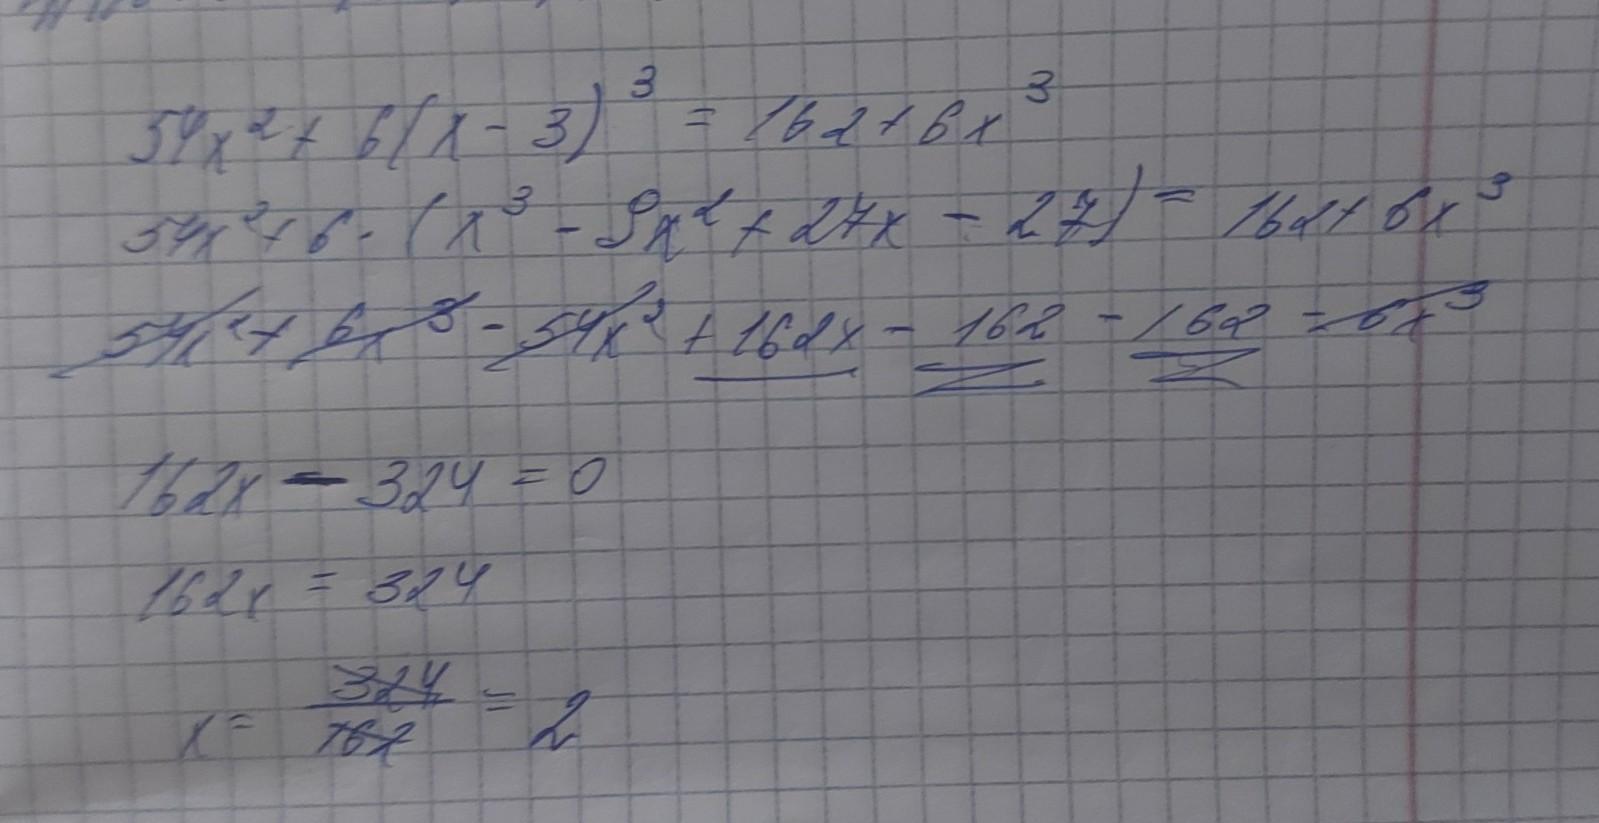 54x² + 6(x - 3)³ = 162 + 6x³
54x² + 6 · (x³ - 9x² + 27x - 27) = 162 + 6x³
54x² + 6x³ - 54x² + 162x - 162 - 162 - 6x³
162x - 324 = 0
162x = 324
x = 324/162 = 2